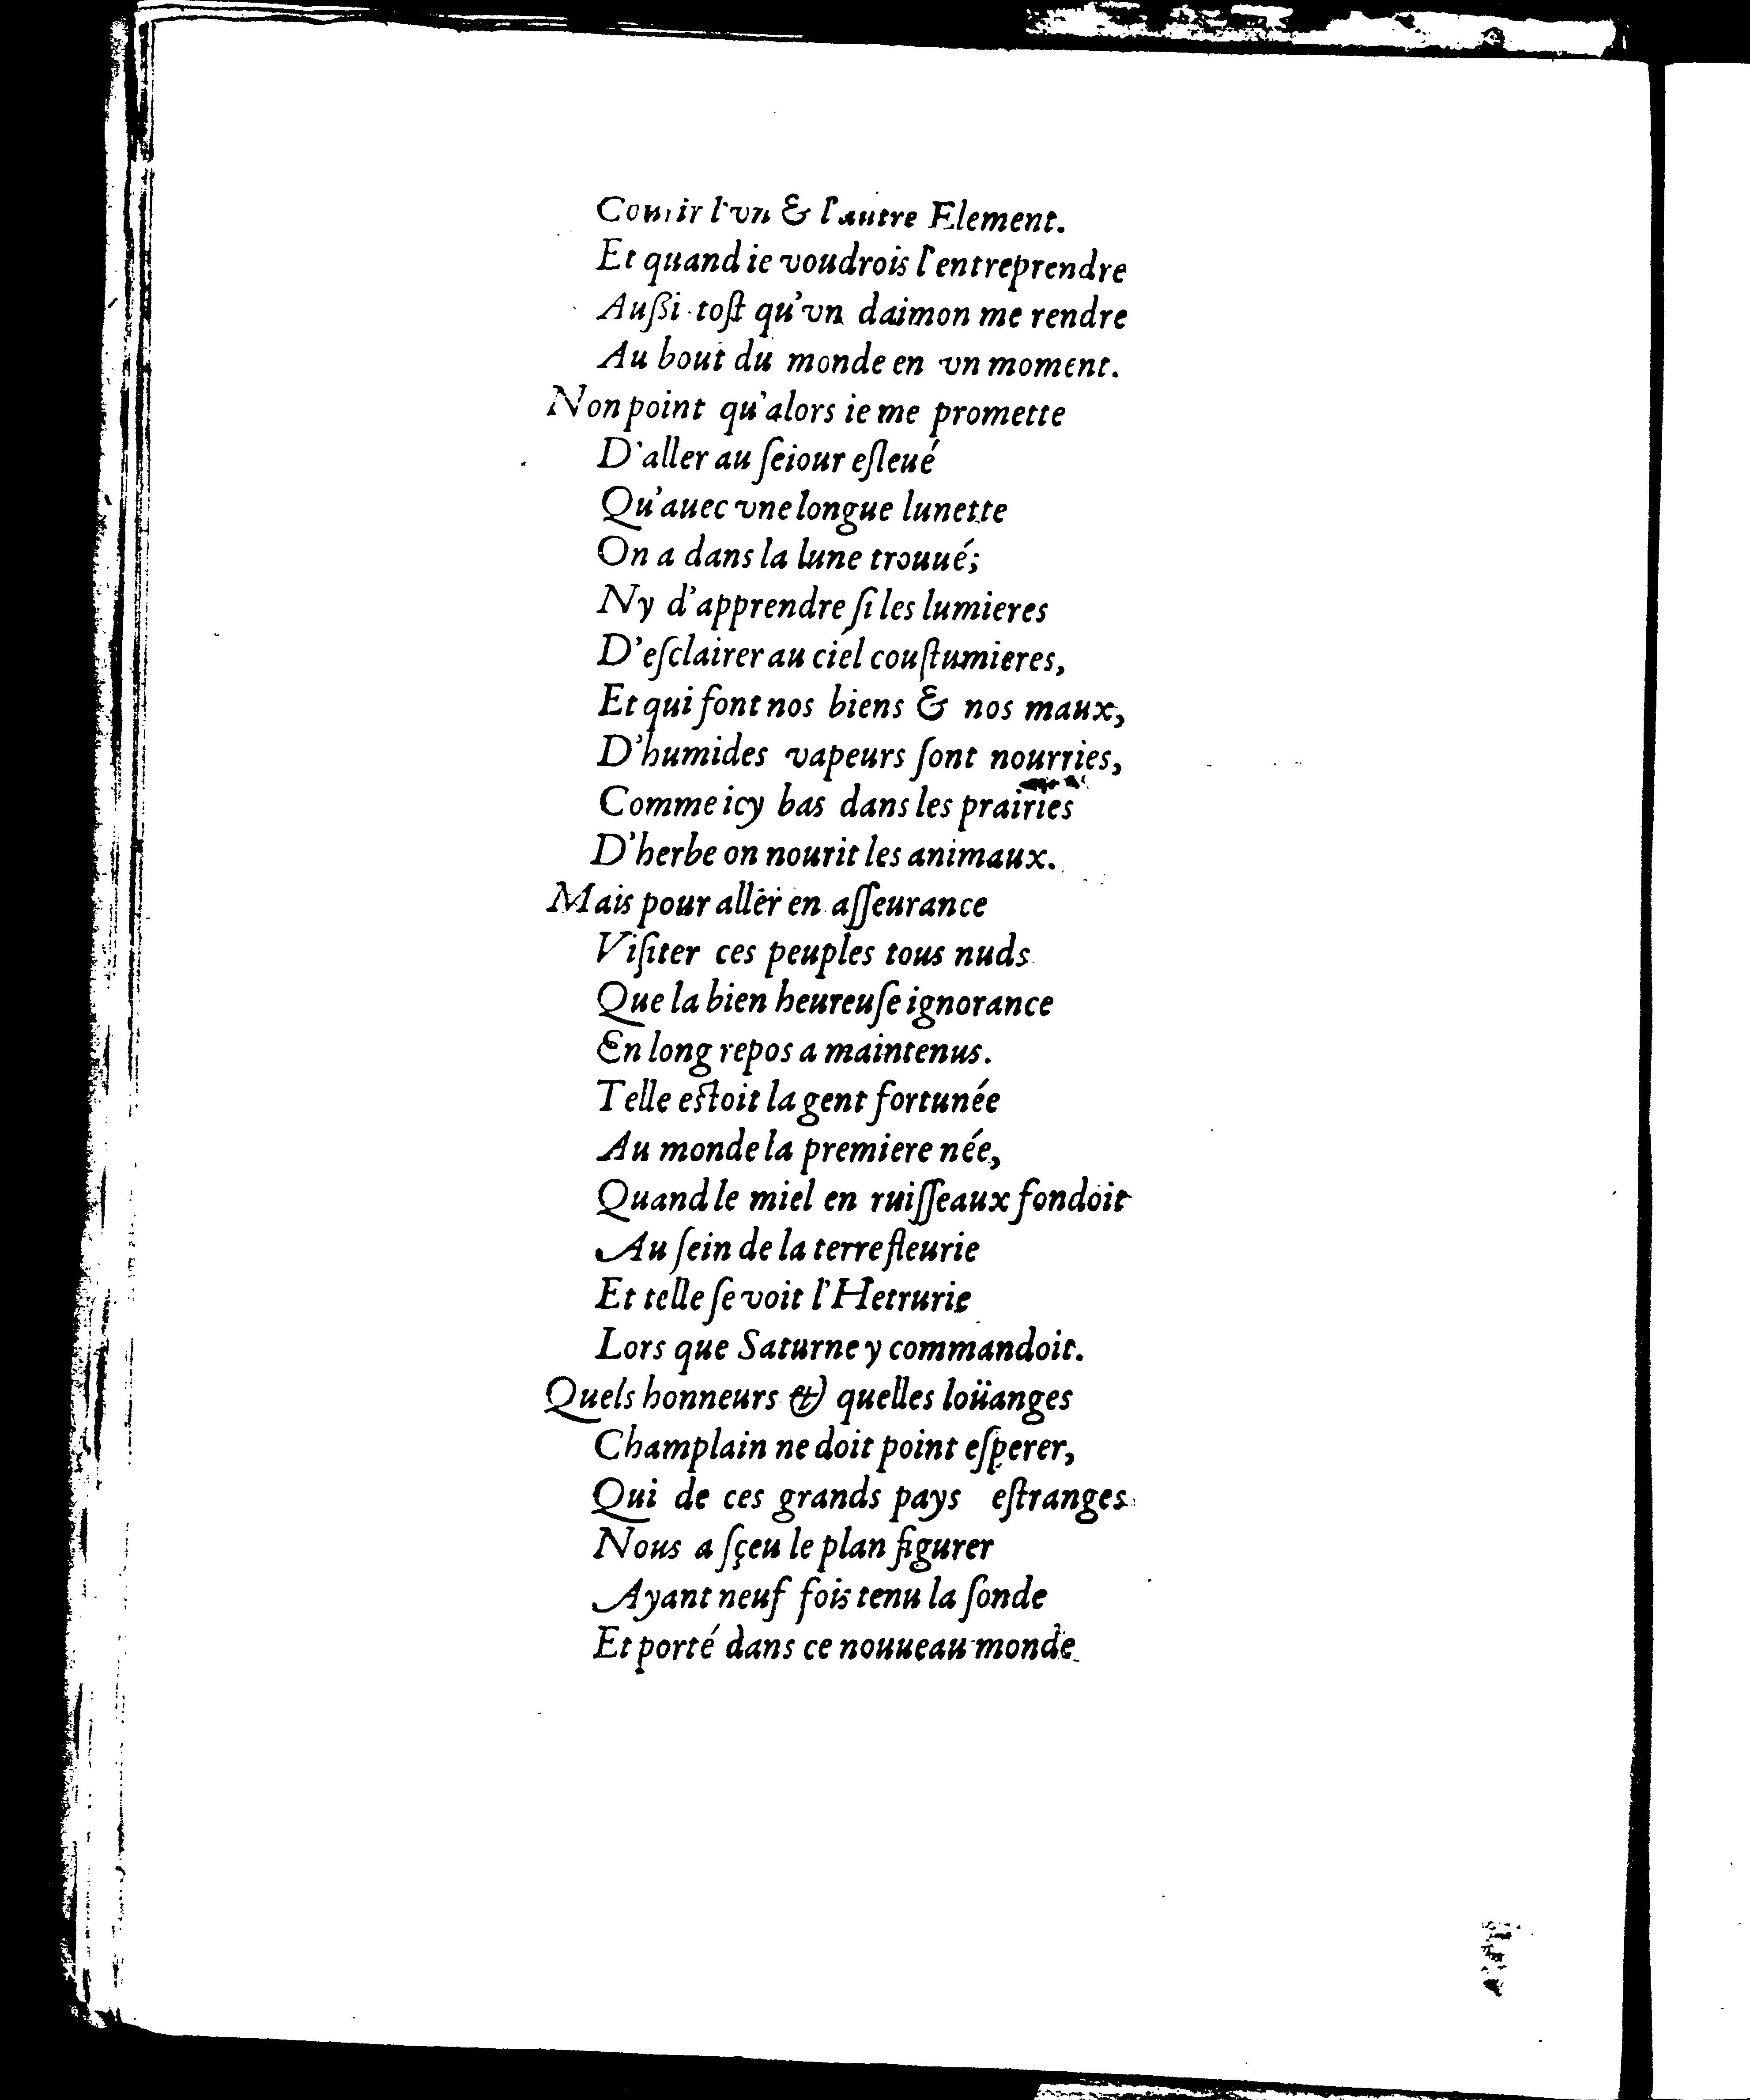 Couurir l'vn & l'autre Element.
Et quand ie voudrois l'entreprendre
Außi-toſt qu'vn daimon me rendre
Au bout du monde en vn moment.
Non point qu'alors ie me promette
D'aller au ſeiour eſleué
Qu'auec vne longue lunette
On a dans la lune trouué;
Ny d'apprendre ſi les lumieres
D'eſclairer au ciel couſtumieres,
Et qui font nos biens & nos maux,
D'humides vapeurs ſont nourries,
Comme icy bas dans les prairies
D'herbe on nourit les animaux.
Mais pour aller en aſſeurance
Viſiter ces peuples tous nuds
Que la bien heureuſe ignorance
En long repos a maintenus.
Telle eſtoit la gent fortunée
Au monde la premiere née,
Quand le miel en ruiſſeaux fondoit
Au ſein de la terre fleurie
Et telle ſe voit l'Hetrurie
Lors que Saturne y commandoit.
Quels honneurs & quelles loüanges
Champlain ne doit point eſperer,
Qui de ces grands pays eſtranges
Nous a ſçeu le plan figurer
Ayant neuf fois tenu la ſonde
Et porté dans ce nouueau monde